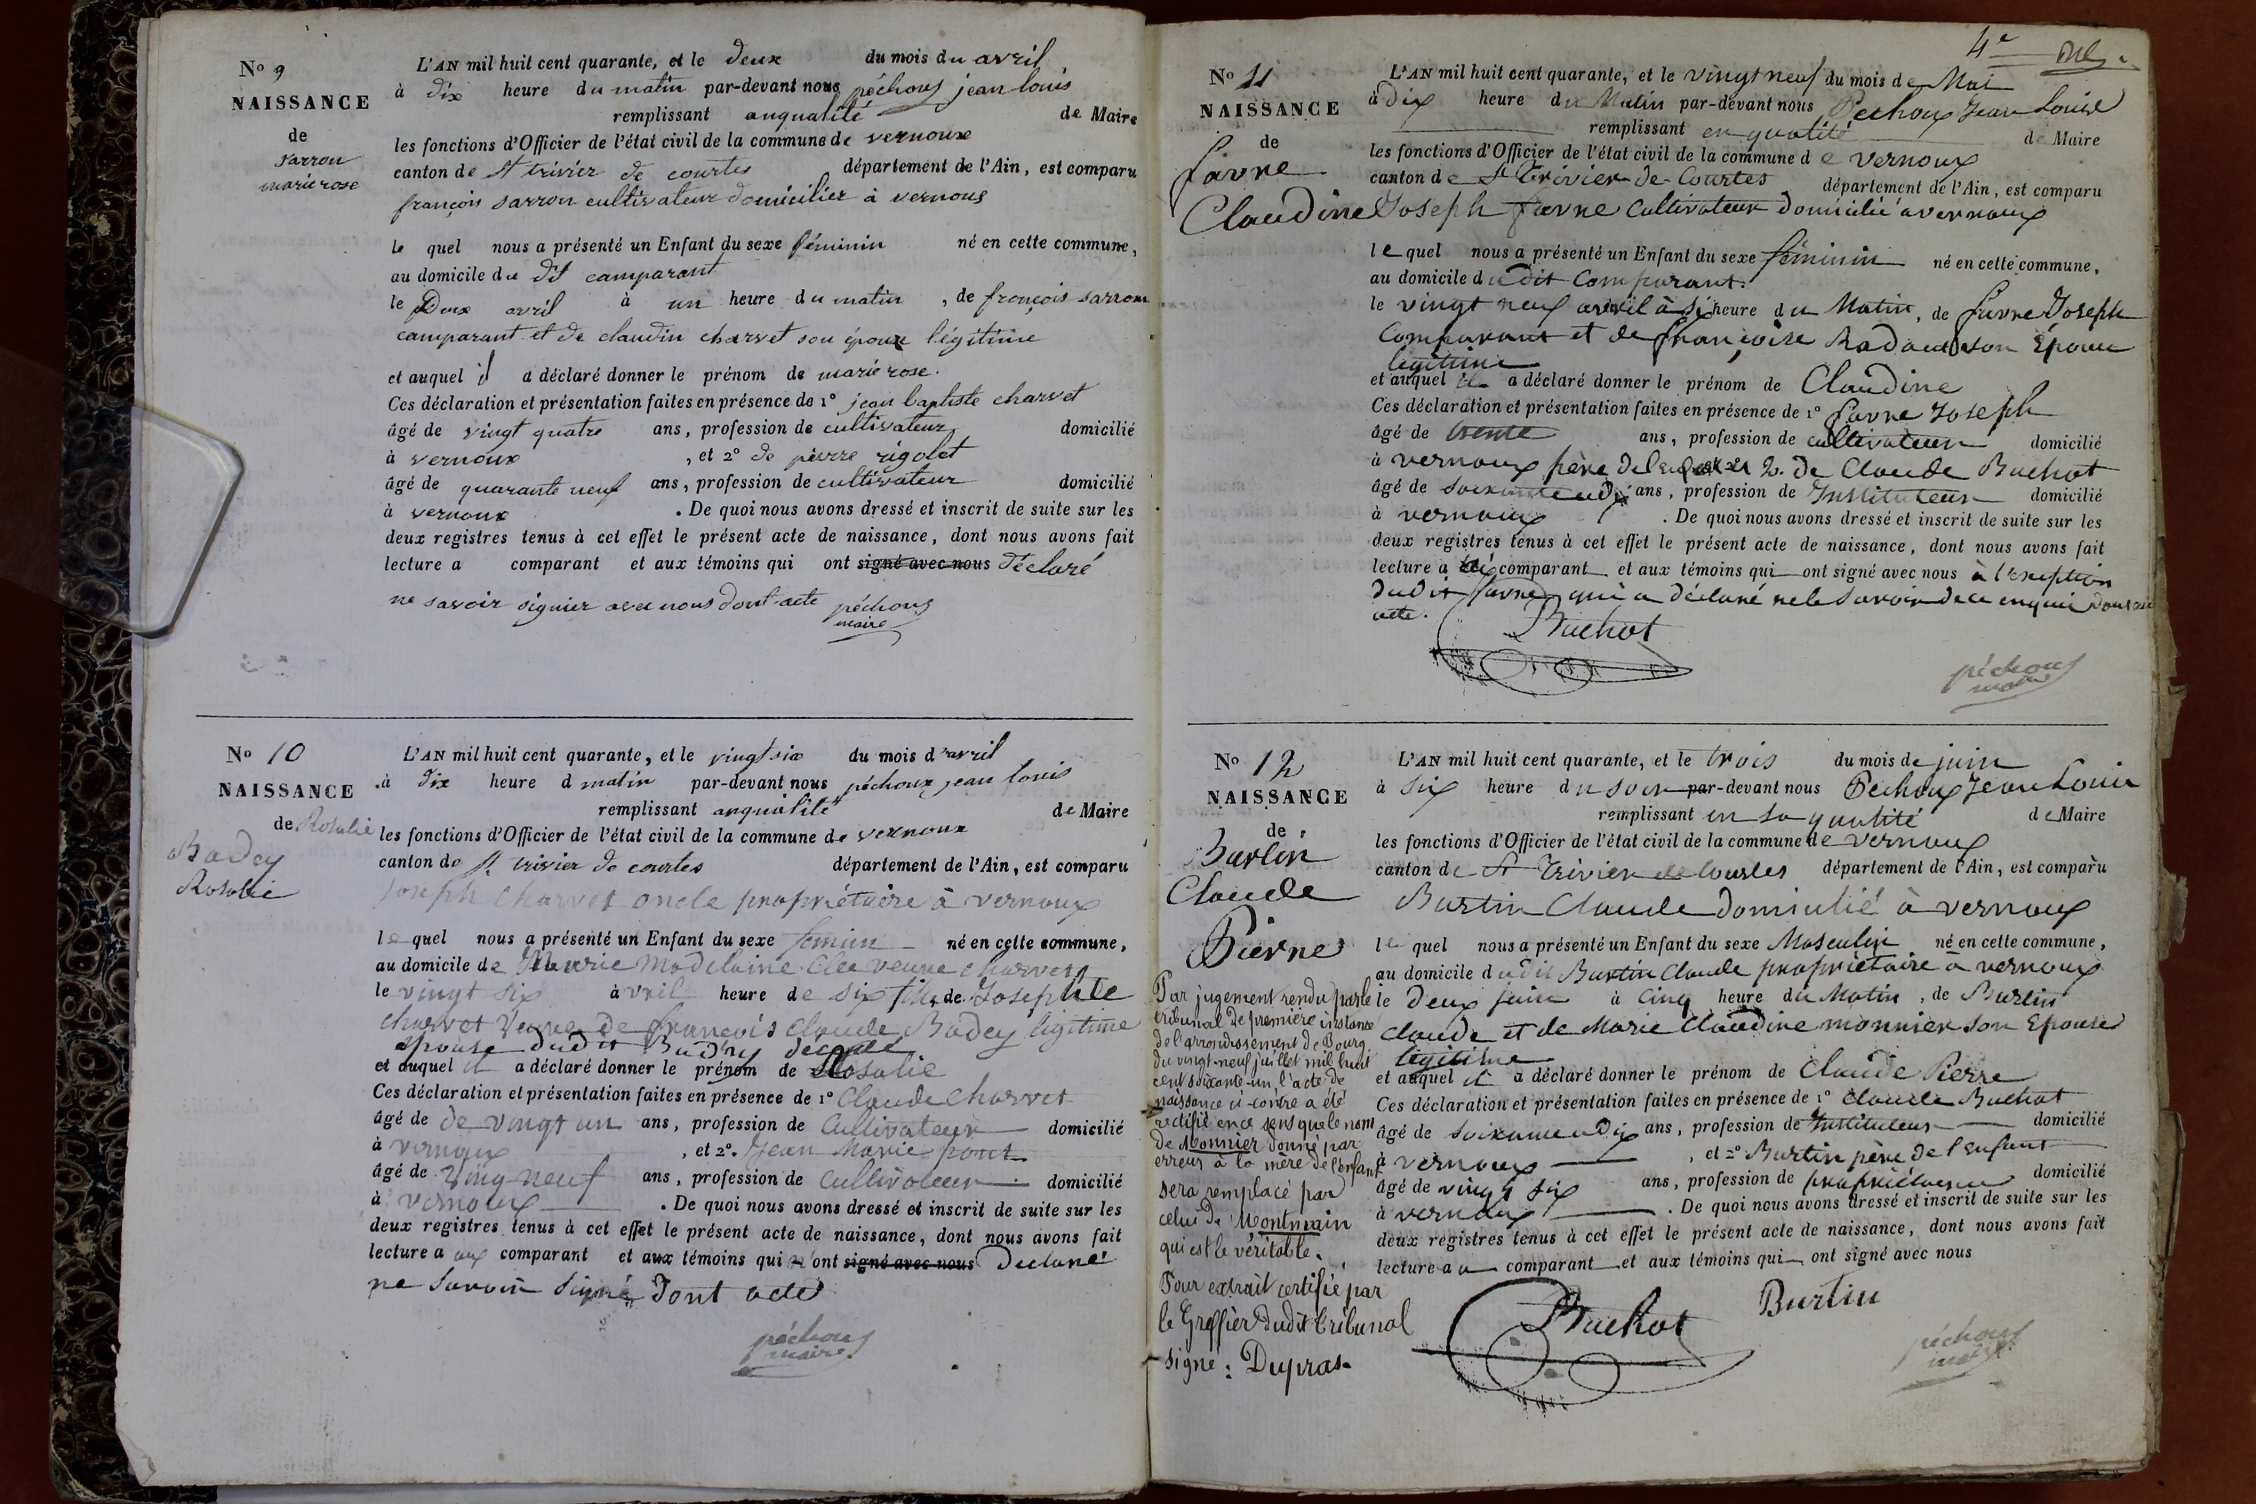 No 9
NAISSANCE
de
sarron
marie rose
L'AN mil huit cent quarante, et le deux du mois du avril
à dix heure du matin par-devant nous péchoux jean louis
remplissant anqualité de Maire
les fonctions d'Officier de l'état civil de la commune de vernoux
canton de St trivier de courtes département de l'Ain, est comparu
françois sarron cultivateur domicilier à vernoux
le quel nous a présenté un Enfant du sexe féminin né en cette commune,
au domicile du dit camparant
le Deux avril à un heure du matin, de françois sarron
camparant et de claudin charvet son épouse légitime
et auquel il a déclaré donner le prénom de marie rose.
Ces déclaration et présentation faites en présence de 1° jean baptiste charvet
âgé de vingt quatre ans, profession de cultivateur domicilié
à vernoux, et 2° de pierre rigolet
âgé de quarante neuf ans, profession de cultivateur domicilié
à vernoux. De quoi nous avons dressé et inscrit de suite sur les
deux registres tenus à cet effet le présent acte de naissance, dont nous avons fait
lecture a comparant et aux témoins qui ont signé avec nous déclaré
ne savoir signier avec nous dont acte péchoux
maire
No 10
NAISSANCE
de Rosalie
Badey
Rosalie
L'AN mil huit cent quarante, et le vingt six du mois d'avril
à dix heure d matin par-devant nous péchoux jean louis
remplissant anqualité de Maire
les fonctions d'Officier de l'état civil de la commune de vernoux
canton de St trivier de courtes département de l'Ain, est comparu
Joseph Charvet oncle propriétaire à vernoux
le quel nous a présenté un Enfant du sexe féminin né en cette commune,
au domicile de Marie Madelaine veuve charvet
le vingt six avril heure de six de Josephte
charvet veuve de francois Claude Badey légitime
épouse dudit Badey décédé
et auquel il a déclaré donner le prénom de Rosalie
Ces déclaration et présentation faites en présence de 1° Claude Charvet
âgé de de vingt un ans, profession de Cultivateur domicilié
à vernoux, et 2°. Jean Marie
âgé de ving neuf ans, profession de Cultivateur domicilié
à vernoux. De quoi nous avons dressé et inscrit de suite sur les
deux registres tenus à cet effet le présent acte de naissance, dont nous avons fait
lecture a aux comparant et aux témoins qui n'ont signé avec nous Declaré
ne savoir signé Dont acte
péchoux
maire
4e
No 11
NAISSANCE
de
Favre
Claudine
L'AN mil huit cent quarante, et le vingt neuf du mois de Mai
à Dix heure du Matin par-devant nous Pechoux Jean Louis
remplissant en qualité de Maire
les fonctions d'Officier de l'état civil de la commune de vernoux
canton de St Trivier de Courtes département de l'Ain, est comparu
Joseph Favre Cultivateur domicilié a vernoux
le quel nous a présenté un Enfant du sexe féminin né en cette commune,
au domicile dudit Comparant.
le vingt neuf avril à Six heure du Matin, de Favre Joseph
Comparant et de françoise son Épouse
légitime
et auquel il a déclaré donner le prénom de Claudine
Ces déclaration et présentation faites en présence de 1° Favre Joseph
âgé de trente ans, profession de cultivateur domicilié
à vernoux père de l'enfant et 2°. de Claude Buchot
âgé de soixante et dix ans, profession de Instituteur domicilié
à vernoux. De quoi nous avons dressé et inscrit de suite sur les
deux registres tenus à cet effet le présent acte de naissance, dont nous avons fait
lecture a comparant et aux témoins qui ont signé avec nous à l'exception
dudit Favre qui a déclaré ne le savoir de ce enquis dont
acte.
Buchot
péchoux
maire
No 12
NAISSANCE
de
Burtin
Claude
Pierre
Par jugement rendu par le
tribunal de première instance
de l'arrondissement de Bourg
du vingt-neuf juillet mil huit
cent soixante-un l'acte de
naissance ci-contre a été
rectifié en ce sens que le nom
de Monnier donné par
erreur à la mère de l'enfant
sera remplacé par
celui de Montmain
qui est le véritable.
Pour extrait certifié par
le Greffier dudit tribunal
signé : Dupras
L'AN mil huit cent quarante, et le trois du mois de juin
à six heure du soir par-devant nous Pechoux Jean Louis
remplissant en sa qualité de Maire
les fonctions d'Officier de l'état civil de la commune de vernoux
canton de St Trivier de Courtes département de l'Ain, est comparu
Burtin Claude domicilié à vernoux
le quel nous a présenté un Enfant du sexe Masculin né en cette commune,
au domicile dudit Burtin Claude propriétaire à vernoux
le deux juin à cinq heure du Matin, de Burtin
Claude et de Marie Claudine monnier son Epouse
légitime
et auquel il a déclaré donner le prénom de Claude Pierre
Ces déclaration et présentation faites en présence de 1° Claude Buchot
âgé de soixante et dix ans, profession de Instituteur domicilié
à vernoux, et 2° Burtin père de l'enfant
âgé de vingt six ans, profession de propriétaire domicilié
à vernoux. De quoi nous avons dressé et inscrit de suite sur les
deux registres tenus à cet effet le présent acte de naissance, dont nous avons fait
lecture a u comparant et aux témoins qui ont signé avec nous
Buchot Burtin
péchoux
maire